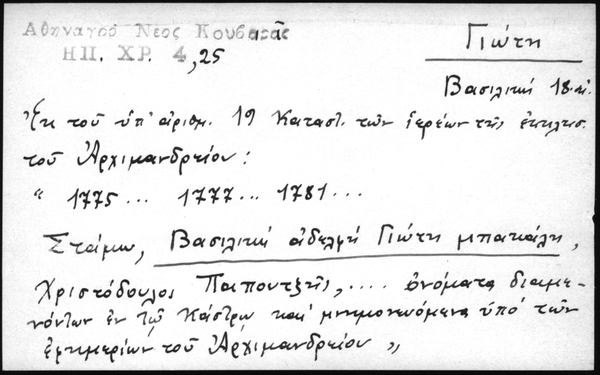 Ἀθηναγού Νεος Κουβαρᾶς
ΗΠ. ΧΡ. 4,25
Γιώτη
Βασιλική 18 αἰ.
Ἐκ τοῦ ὑπ' ἀριθμ. 19 Καταστ. τῶν ἱερέων τῆς ἐκκλησ.
τοῦ Ἀρχιμανδρείου:
" 1775 ... 1777 ... 1781 ...
Στάμω, Βασιλική ἀδελφή Γιώτη μπακάλη,
Χριστόδουλος Παπουτζῆς, .... ὀνόματα διαμε-
νόντων ἐν τῷ Κάστρῳ καί μνημονευόμενα ὑπό τῶν
ἐφημερίων τοῦ Ἀρχιμανδρείου "